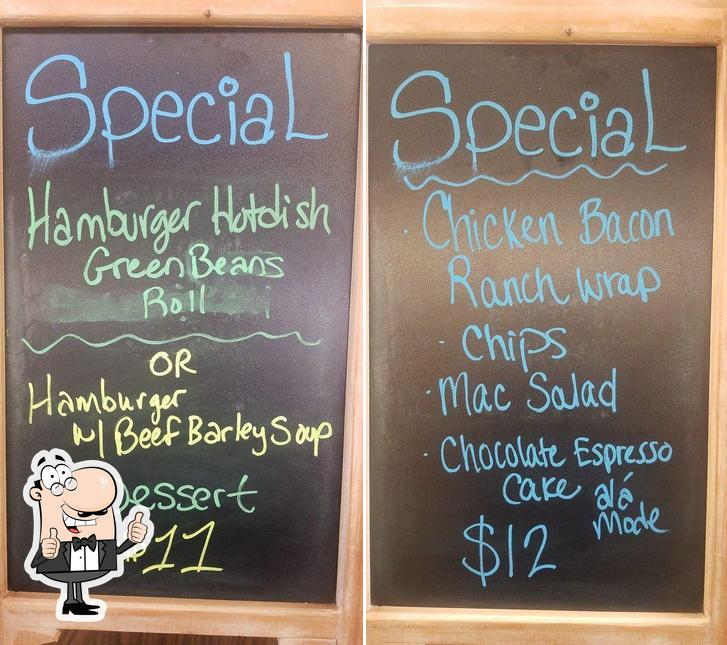 Special
Hamburger Hotdish
Green Beans
Roll
OR
Hamburger
w/ Beef Barley Soup
Dessert
11
Special
· Chicken Bacon
Ranch Wrap
· Chips
· Mac Salad
· Chocolate Espresso
Cake alá
Mode
$12